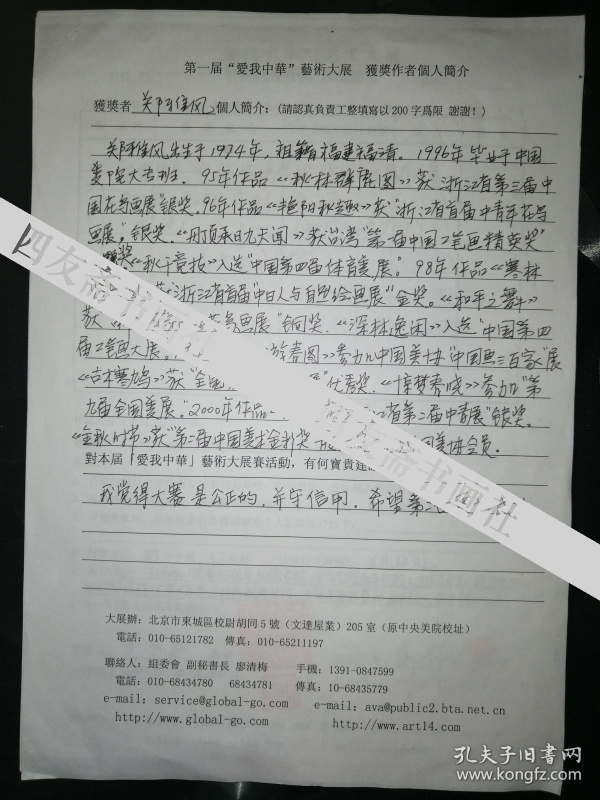 第一届“愛我中華”藝術大展　獲獎作者個人簡介
獲獎者 关阿维风 個人簡介：（請認真負責工整填寫以200字爲限 謝謝！）
出生于1974年，祖籍福建福清。1996年毕业于中国
美院大专班。95年作品《秋林群鹿图》获“浙江省第三届中
国花鸟画展”银奖。96年作品《艳阳秋趣》获“浙江省首届中青年花鸟
画展”银奖。《丹顶承日九天闻》获台湾“第一届中国工笔画精英奖”
奖《秋千竞技》入选“中国第四届体育美展”。98年作品《寒林
获“浙江省首届“中日人与自然绘画展”金奖。《和平之舞》
获 画展”铜奖。《深林逸闲》入选“中国第四
届工笔画大展。 春图》参加中国美协“中国画三百家”展
《古木寒鸠》获“全国 优秀奖。《惊梦春晓》参加“第
九届全国美展。”2000年作品 江省第二届中青展”银奖。
《金秋时节》获“第二届中国美术金彩奖 美协会员。
對本届「愛我中華」藝術大展賽活動，有何寶貴建
我觉得大赛是公正的，并守信用，希望第二
大展辦：北京市東城區校尉胡同5號（文達屋業）205室（原中央美院校址）
電話：010-65121782　傳真：010-65211197
聯絡人：組委會 副秘書長 廖清梅　手機：1391-0847599
電話：010-68434780　68434781　傳真：10-68435779
e-mail：service@global-go.com　e-mail：ava@public2.bta.net.cn
http://www.global-go.com　http://www.art14.com
四友斋书画社
四友斋书画社
孔夫子旧书网
www.kongfz.com